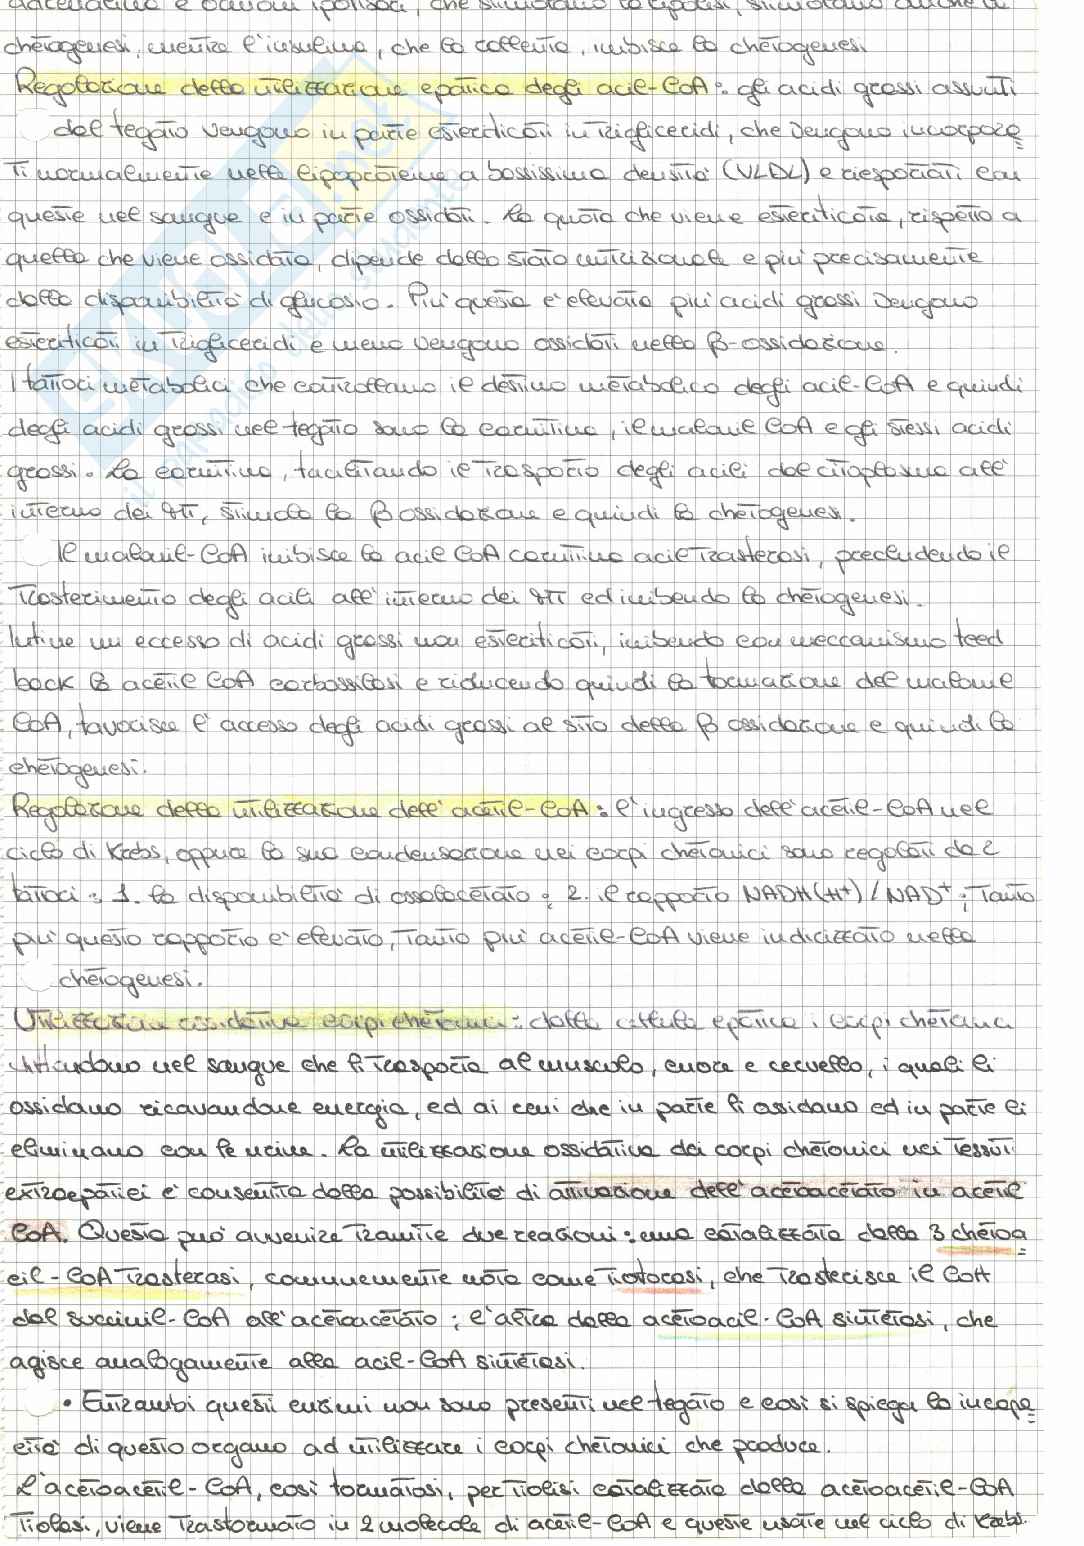 adrenalina e ormoni ipofisari, che stimolano la lipolisi, stimolano anche la
chetogenesi, mentre l'insulina, che la rallenta, inibisce la chetogenesi
Regolazione della utilizzazione epatica degli acil-CoA: gli acidi grassi assunti
dal fegato vengono in parte esterificati in trigliceridi, che vengono incorpora=
ti normalmente nelle lipoproteine a bassissima densità (VLDL) e riesportati con
queste nel sangue e in parte ossidati. La quota che viene esterificata, rispetto a
quella che viene ossidata, dipende dallo stato nutrizionale e più precisamente
dalla disponibilità di glucosio. Più questa è elevata più acidi grassi vengono
esterificati in trigliceridi e meno vengono ossidati nella β-ossidazione.
I fattori metabolici che controllano il destino metabolico degli acil-CoA e quindi
degli acidi grassi nel fegato sono la carnitina, il malonil CoA e gli stessi acidi
grassi. La carnitina, facilitando il trasporto degli acili dal citoplasma all'
interno dei mt, stimola la β ossidazione e quindi la chetogenesi.
Il malonil-CoA inibisce la acil CoA carnitina aciltrasferasi, precludendo il
trasferimento degli acili all'interno dei mt ed inibendo la chetogenesi.
Infine un eccesso di acidi grassi non esterificati, inibendo con meccanismo feed
back la acetil CoA carbossilasi e riducendo quindi la formazione del malonil
CoA, favorisce l'accesso degli acidi grassi al sito della β ossidazione e quindi la
chetogenesi.
Regolazione della utilizzazione dell'acetil-CoA: l'ingresso dell'acetil-CoA nel
ciclo di Krebs, oppure la sua condensazione nei corpi chetonici sono regolati da 2
fattori: 1. la disponibilità di ossalacetato; 2. il rapporto NADH(H⁺)/NAD⁺; tanto
più questo rapporto è elevato, tanto più acetil-CoA viene indirizzato nella
chetogenesi.
Utilizzazione ossidativa corpi chetonici: dalla cellula epatica i corpi chetonici
diffondono nel sangue che li trasporta al muscolo, cuore e cervello, i quali li
ossidano ricavandone energia, ed ai reni che in parte li ossidano ed in parte li
eliminano con le urine. La utilizzazione ossidativa dei corpi chetonici nei tessuti
extraepatici è consentita dalla possibilità di attivazione dell'acetoacetato in acetil
CoA. Questa può avvenire tramite due reazioni: una catalizzata dalla 3 chetoa=
cil-CoA trasferasi, comunemente nota come tioforasi, che trasferisce il CoA
dal succinil-CoA all'acetoacetato; l'altra dalla acetoacil-CoA sintetasi, che
agisce analogamente alla acil-CoA sintetasi.
• Entrambi questi enzimi non sono presenti nel fegato e così si spiega la incapa=
cità di questo organo ad utilizzare i corpi chetonici che produce.
L'acetoacetil-CoA, così formatosi, per tiolisi catalizzata dalla acetoacetil-CoA
tiolasi, viene trasformato in 2 molecole di acetil-CoA e queste usate nel ciclo di Krebs.
SKUOLA.net
il paradiso dello studente